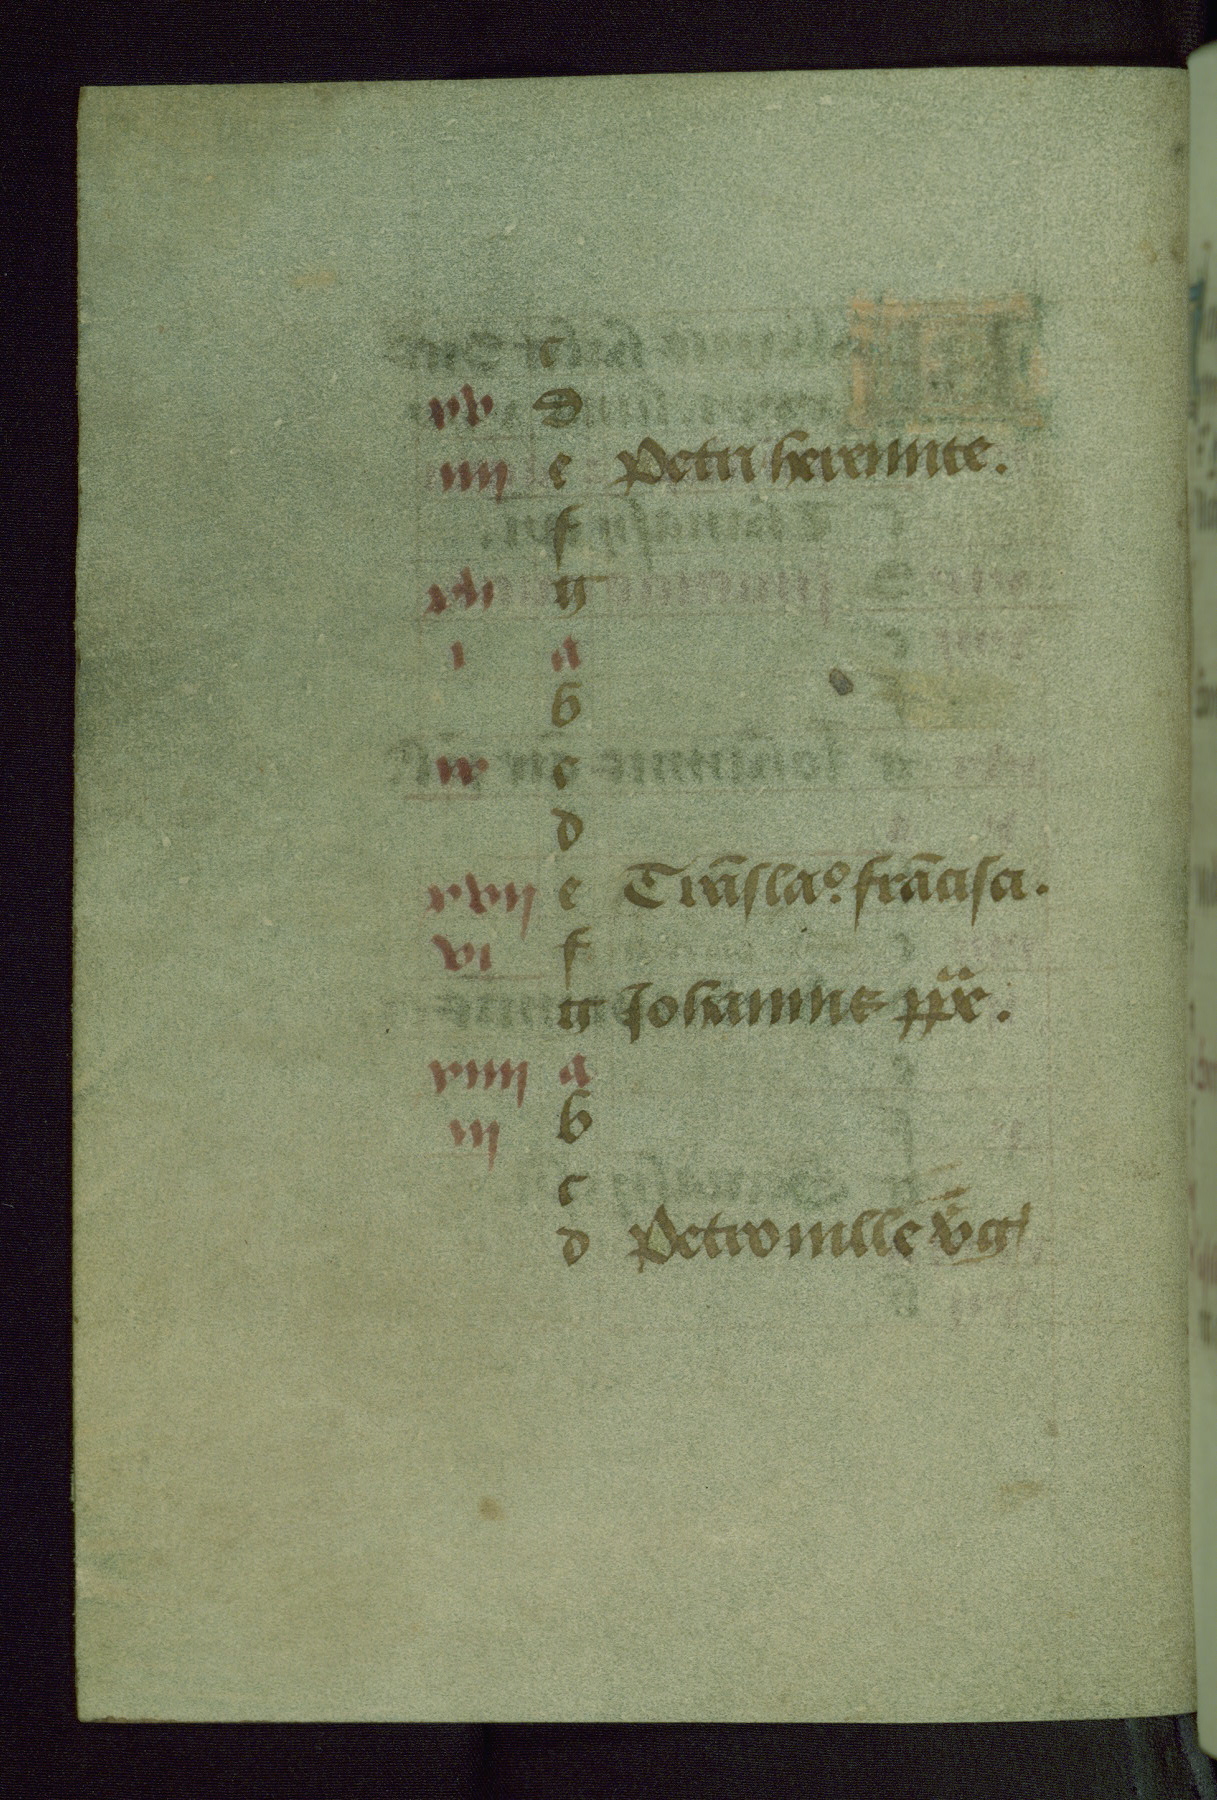 c
xv d
iiij e Petri heremite.
f
xij g
i a
b
ix c
d
xvij e Tra̅slaº. fra̅cisci.
f
vi f
g Johannis pp̅e.
xiiij a
iij b
c
d Petronille v̅ig̅